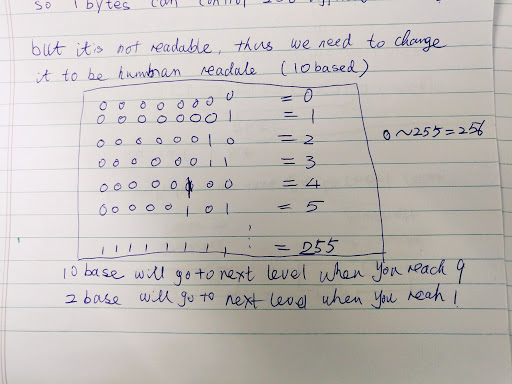 so 1 bytes can control 256
but it is not readable, thus we need to change
it to be humban readale (10 based)
0 0 0 0 0 0 0 0 = 0
0 0 0 0 0 0 0 1 = 1
0 0 0 0 0 0 1 0 = 2
0 ~ 255 = 256
0 0 0 0 0 0 1 1 = 3
0 0 0 0 0 1 0 0 = 4
0 0 0 0 0 1 0 1 = 5
⋮
1 1 1 1 1 1 1 1 = 255
10 base will go to next level when you reach 9
2 base will go to next level when you reah 1